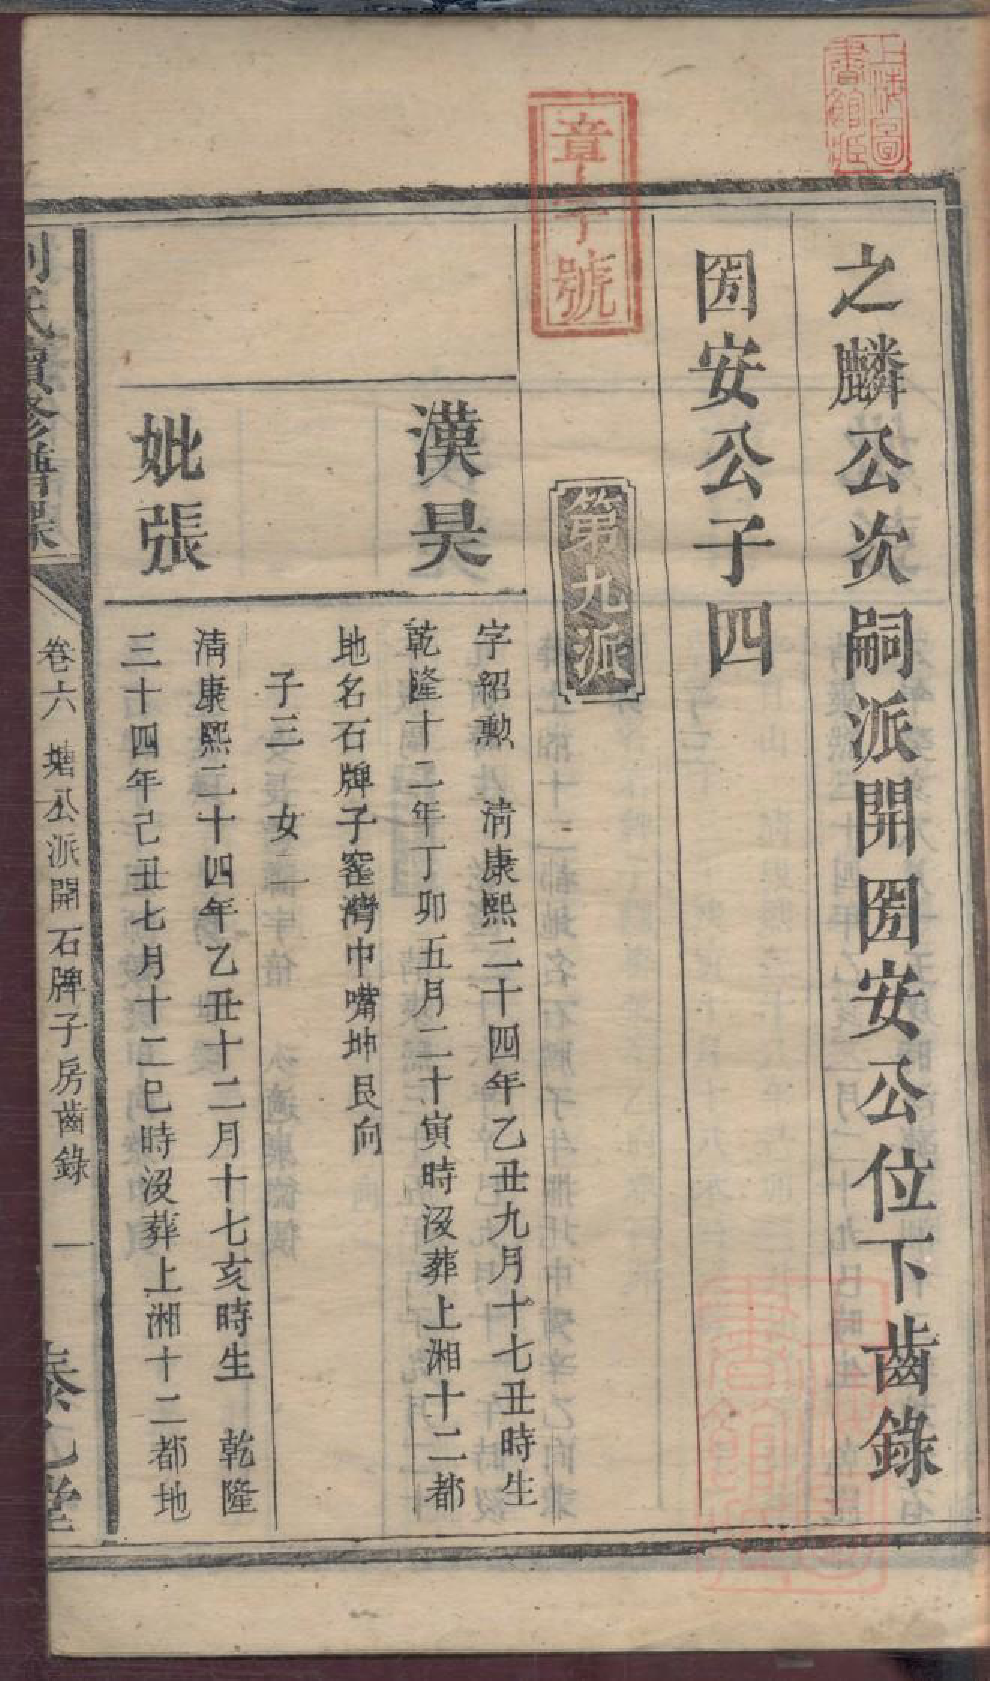 之麟公次嗣派開圀安公位下齒錄
圀安公子四
章字號
第九派
漢昊
字紹勲　清康熙二十四年乙丑九月十七丑時生
乾隆十二年丁卯五月二十寅時沒葬上湘十二都
地名石牌子窰灣巾嘴坤艮向
子三　女一
妣張
清康熙二十四年乙丑十二月十七亥時生　乾隆
三十四年己丑七月十二巳時沒葬上湘十二都地
氏續修譜
卷六　塘公派開石牌子房齒錄　一
堂
上海圖
書館藏